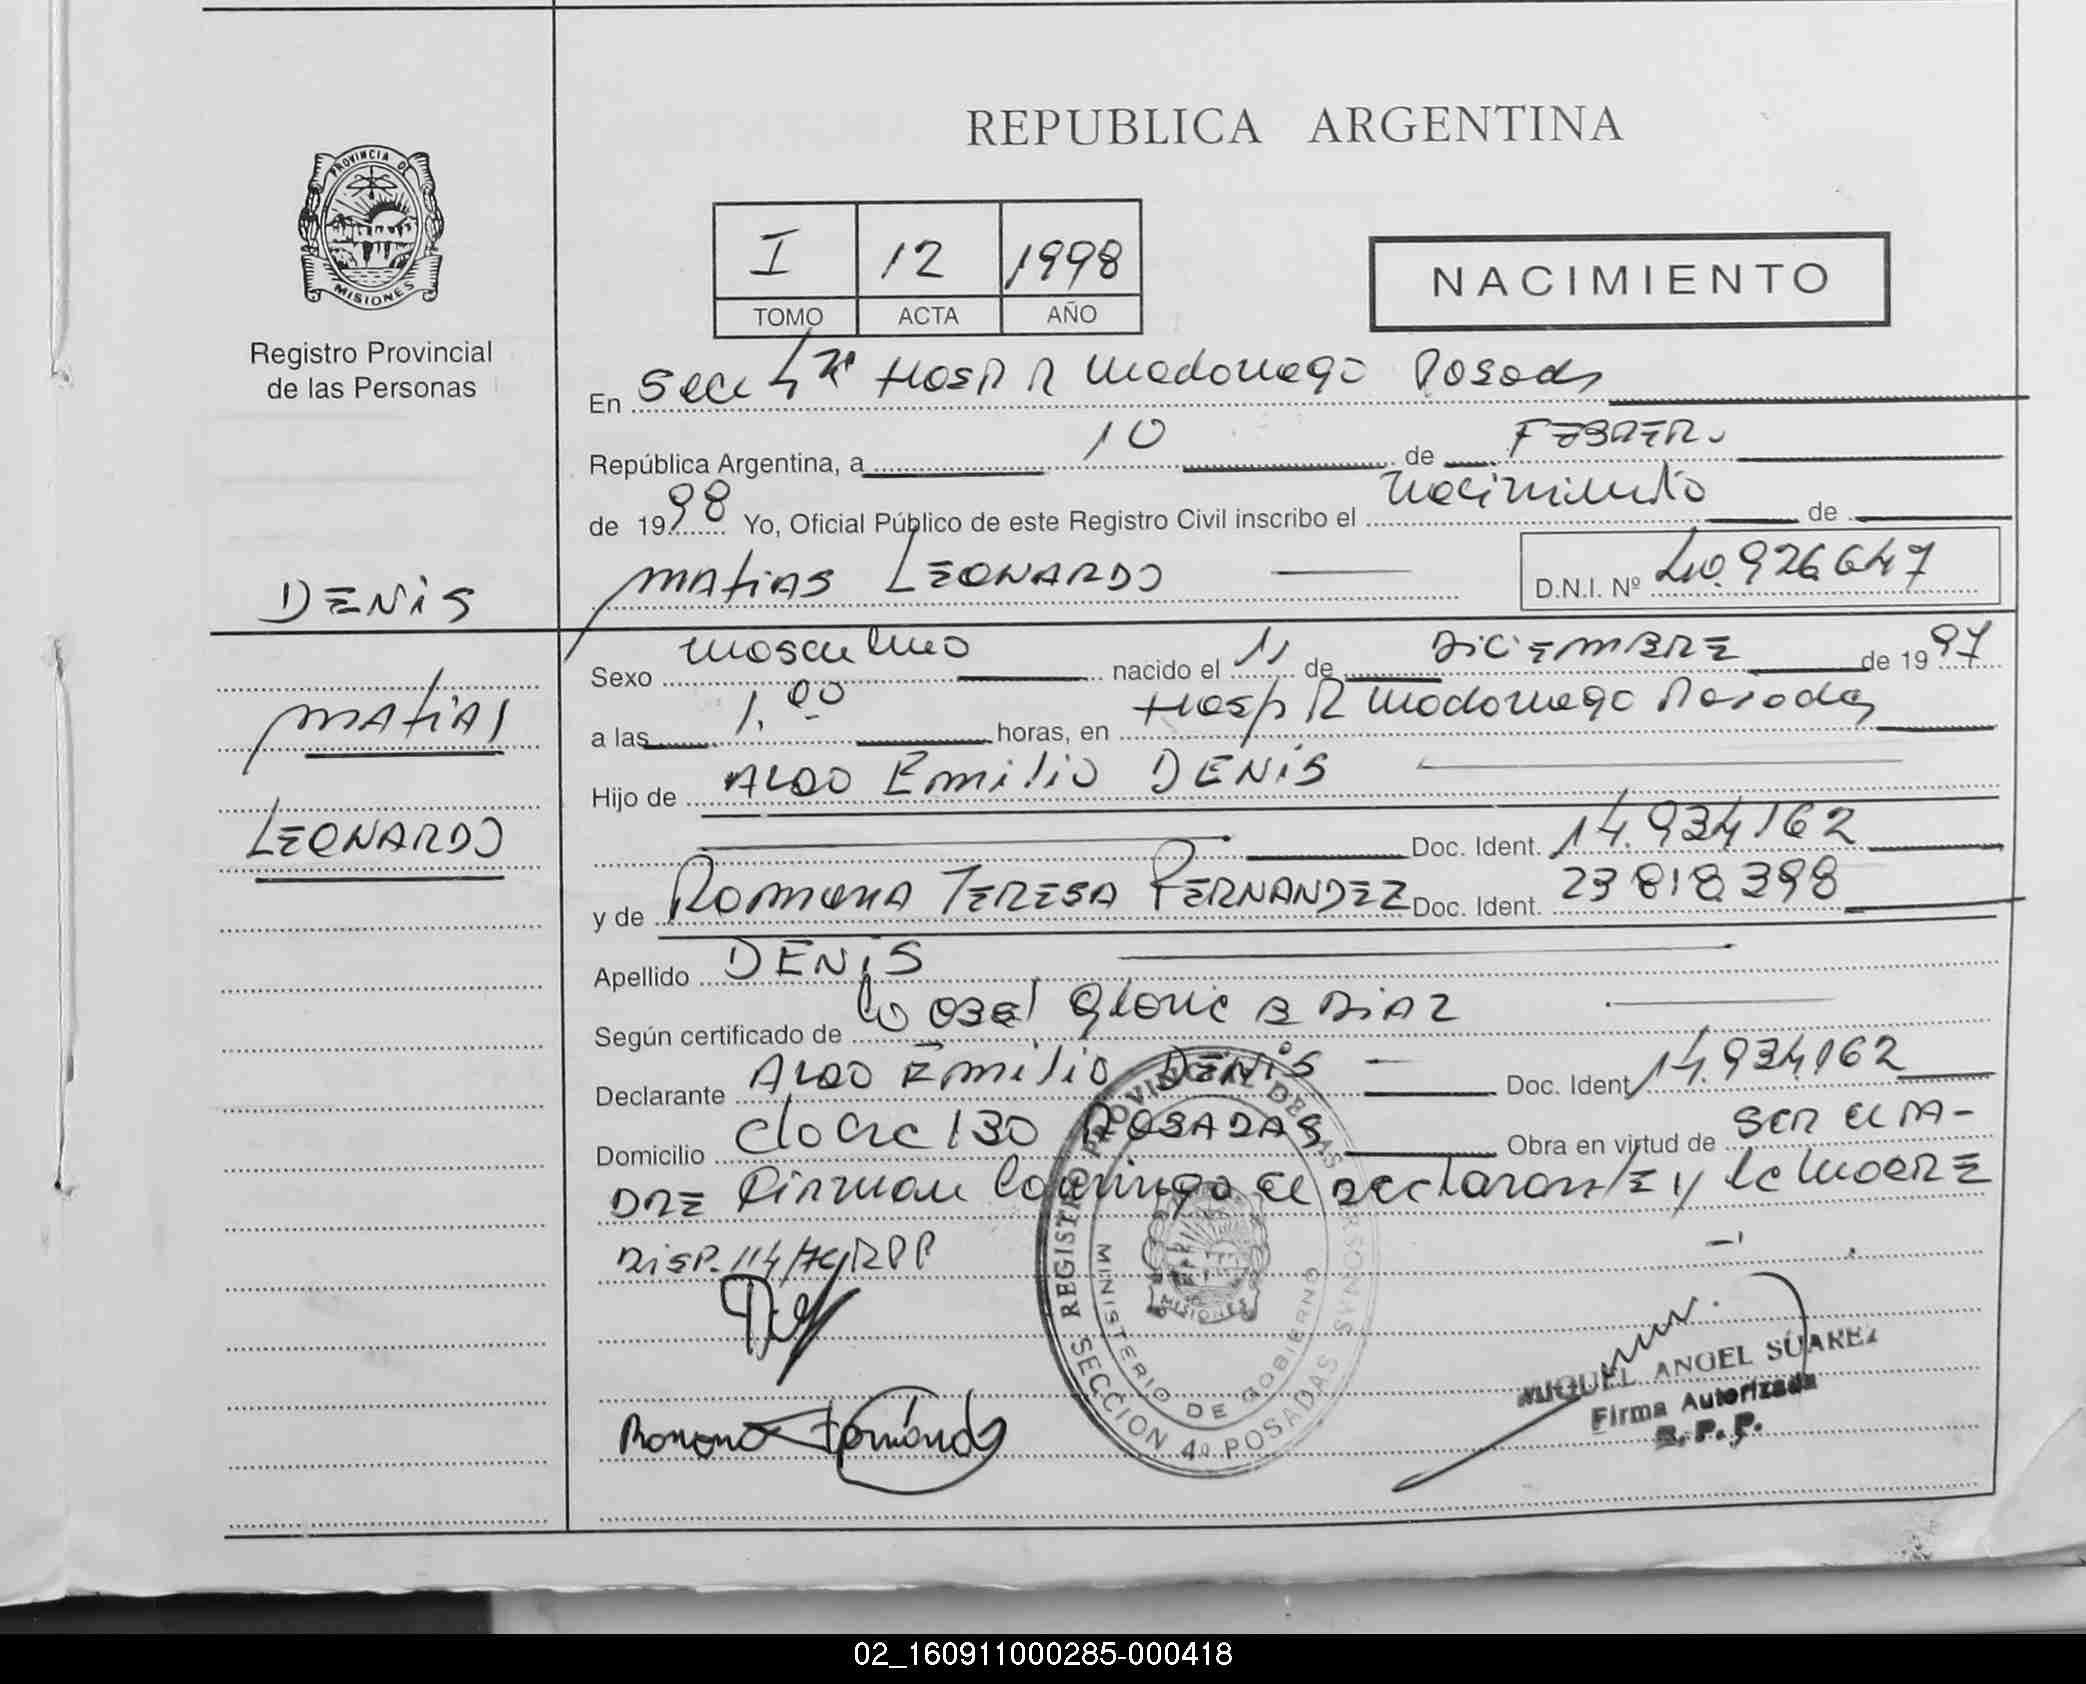 REPUBLICA ARGENTINA
PROVINCIA DE
MISIONES
Registro Provincial
de las Personas
I 12 1998
TOMO ACTA AÑO
NACIMIENTO
En Secc 4ta Hosp R Madariaga Posadas
República Argentina, a 10 de FEBRERO
de 1998 Yo, Oficial Público de este Registro Civil inscribo el nacimiento de
MATIAS LEONARDO D.N.I. Nº 40.926.647
DENIS
MATIAS
LEONARDO
Sexo masculino nacido el 11 de DICIEMBRE de 1997
a las 1.00 horas, en Hosp R Madariaga Posadas
Hijo de ALDO EMILIO DENIS
Doc. Ident. 14.934.162
y de ROMONA TERESA FERNANDEZ Doc. Ident. 23 818 398
Apellido DENIS
Según certificado de la Obst Gloria B DIAZ
Declarante ALDO EMILIO DENIS Doc. Ident. 14.934.162
Domicilio 130 POSADAS Obra en virtud de SER el PA-
DRE Firman conmigo el declarante y la MADRE
DISP. 114/74 RPP
Romona Fernández
REGISTRO PROVINCIAL DE LAS PERSONAS
SECCION 4º POSADAS
MINISTERIO DE GOBIERNO
MISIONES
MIGUEL ANGEL SUAREZ
Firma Autorizada
R. P. P.
02_160911000285-000418